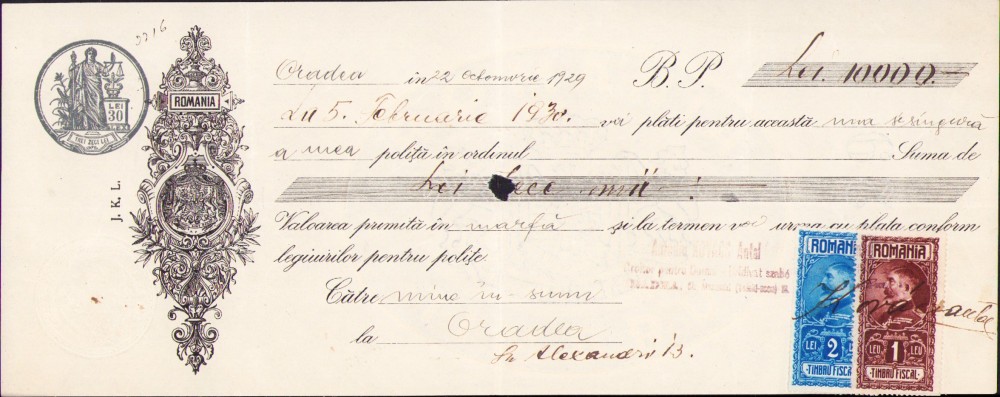 3216
LEI
30
TREI ZECI LEI
ROMANIA
J. K. L.
Oradea în 22 octomvrie 1929 B. P. Lei 10000.—
La 5. Februarie 1930. voi plăti pentru aceastā una și singură
a mea poliţă în ordinul Suma de
Lei zece mii
Valoarea primită în marfă și la termen voi urma cu plata conform
legiuirilor pentru poliţe
Către mine în-sumi
la Oradea
Str Alexandri 13.
Antal
ROMANIA
LEI 2 LEI
TIMBRU FISCAL
ROMANIA
LEU 1 LEU
TIMBRU FISCAL